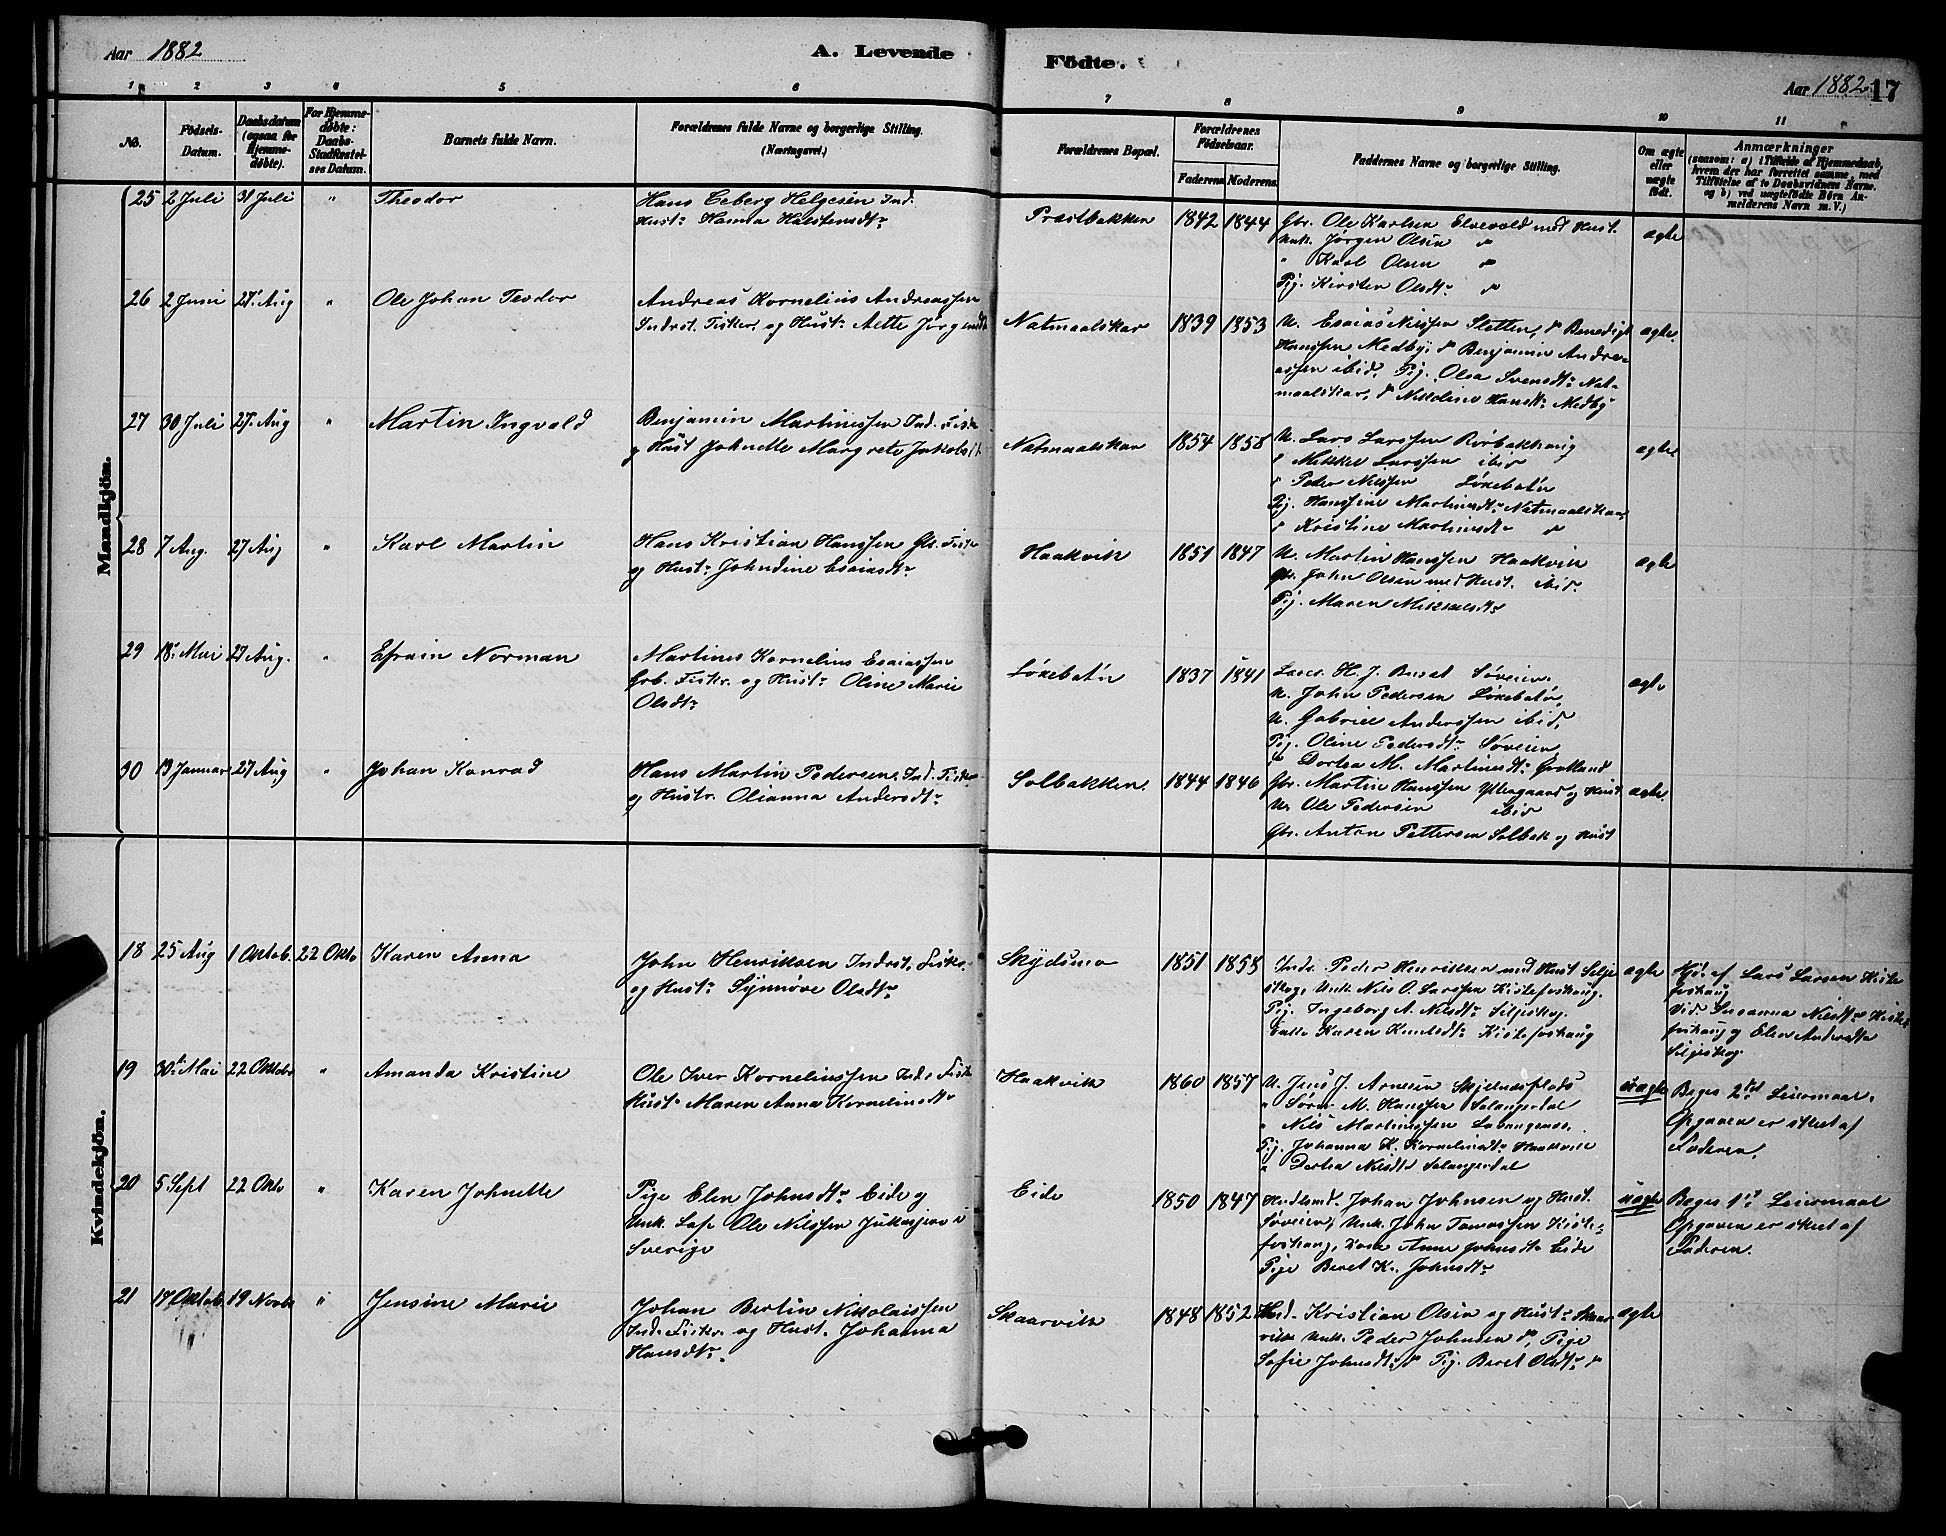 Aar 1882
A. Levende
Födte.
Aar 1882 17
1 2 3 4 5 6 7 8 9 10 11
No.
Födsels-Datum.
Daabsdatum (ogsaa for Hjemme-döbte).
For Hjemme-döbte: Daabs-Stadfæstel-ses Datum.
Barnets fulde Navn.
Forældrenes fulde Navne og borgerlige Stilling. (Næringsvei.)
Forældrenes Bopæl.
Forældrenes Födselsaar.
Faderens Moderens
Faddernes Navne og borgerlige Stilling.
Om ægte eller uægte födt.
Anmærkninger
(saasom: a) i Tilfælde af Hjemmedaab, hvem der har forrettet samme, med Tilföielse af to Daabsvidners Navne. og b) ved uægtefödte Börn An-melderens Navn m. V.)
Mandkjön.
25 2 Juli 31 Juli " Theodor
Hans Ceberg Helgesen Ind.
Hustr Hanna Halstensdtr
Præstbakken 1842 1844
Gbr. Ole Karlsen Elvevold med Hust.
Unk. Jørgen Olsen "
" Karl Olsen "
Pig. Kirsten Olsdtr "
ægte
26 2 Juni 27 Aug " Ole Johan Teodor
Andreas Kornelius Andreassen
Indrst. Fisker, og Hustr Aette Jørgensdtr
Natmaalskar 1839 1853
U. Esaias Nilssen Sletten, Benedigt
Hanssen Medby, Benjamin Andre-
assen ibid. Pig. Olea Svensdtr Nat-
maalskar, Nikoline Hansdtr Medby
ægte
27 30 Juli 27 Aug " Martin Ingvald
Benjamin Martinussen Ind. Fisk
og Hust Johnette Margrete Jakobsdt
Natmaalskar 1854 1858
U. Lars Larssen Rørbakhaug
Mikkel Larssen ibid
Peder Nilssen Løkebatn
Pig. Hanssine Martinsdtr Natmaalskar
Kristine Martinsdtr "
ægte
28 7 Aug. 27 Aug " Karl Martin
Hans Kristian Hanssen Gbr. Fisker
og Hustr Johndine Esaiasdtr
Haakvik 1851 1847
U. Martin Hanssen Haakvik
Gbr. John Olsen med Hust. ibid.
Pig. Maren Mikkelsdtr
ægte
29 18 Mai 27 Aug. " Efraim Norman
Martines Kornelius Esaiassen
Grb. Fisker. og Hustr Oline Marie
Olsdtr
Løkebatn 1837 1841
H. J. Søveien.
U. John Pedersen Løkebatn,
U. Gabriel Anderssen ibid,
Pig. Oline Pedersdtr Søveien,
Dortea M. Martinesdtr Gratland
ægte
30 13 Januar 27 Aug " Johan Konrad
Hans Martin Pedersen Ind. Fisker
og Hustr. Olianna Andersdtr
Solbakken. 1844 1846
Gbr. Martin Hanssen Yttergaard og Hust
U. Ole Pedersen ibid
Gbr. Anton Pettersen Solbak og Hust
ægte.
Kvindekjön.
18 25 Aug 1 Oktob. 22 Okto Karen Anna
John Henriksen Indrst, Fiskr.
og Hustr Synnøve Olsdtr
Skydsmo 1851 1858
Indr. Peder Henriksen med Hust Selje
skog, Unk. Nils O. Larssen Kistefoshaug.
Pig. Ingeborg A. Nilsdtr Seljeskog.
Karen Knudsdtr Kistefoshaug
ægte
Hjd. af Lars Larsen Kiste
foshaug
Vid. Susanna Nilsdtr Kiste
foshaug og Elen Andersdtr
Seljeskog.
19 30 Mai 22 Oktob " Amanda Kristine
Ole Iver Korneliussen Indr Fisk
Hustr Maren Anna Korneliusdtr
Haakvik 1860 1857
U. Jens J. Arnesen
" Søren M. Hanssen Salangsdal
" Nils Martinssen Lavangsnes.
Pig. Johanna K. Korneliusdtr Haakvik
" Dortea Nilsdtr Salangsdal
uægte
Beges 2det Leiermaal.
Opgaven er sket af
Faderen.
20 5 Sept 22 Okto " Karen Johnette
Pige Elen Johnsdtr Eide og
Unk. Lap Ole Nilssen Jukasjervi
Sverige
Eide 1850 1847
Johan Johnsen og Hust.
Søveien, Unk. John Tomassen Kiste-
foshaug, Kone Anne Johnsdtr Eide
Pige Beret K. Johnsdtr
uægte
Beges 1st Leiermaal
Opgaven er sket af
Faderen.
21 17 Oktob. 19 Novbr " Jensine Marie
Johan Bertin Nikolaissen
Ind. Fiskr. og Hust. Johanna
Hansdtr.
Skaarvik 1848 1852
Ind. Kristian Olsen og Hustr Skaar
vik Unk. Peder Johnsen Pige
Sofie Johnsdtr Pig. Beret Olsdtr
ægte